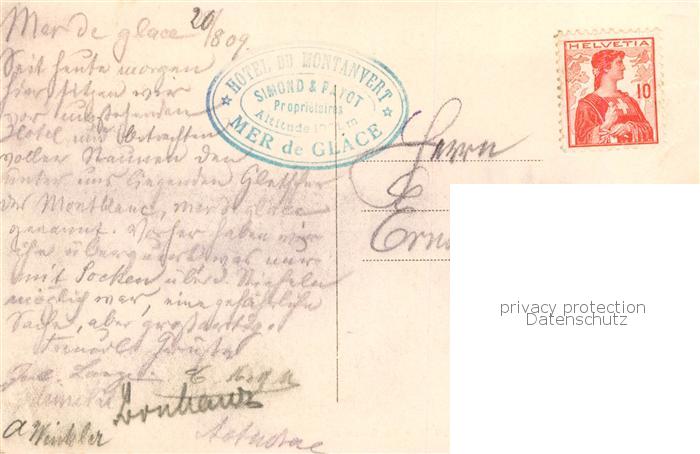 Mer de glace 20/8 09.
Seit heute morgen
hier sitzen wir
vor umstehenden
Hotel und betrachten
voller Staunen den
unter uns liegenden Gletscher
des Montblanc, mer de glace
genannt. Vorher haben wir
ihn überquert was nur
mit Socken über d. Stiefeln
möglich war, eine gefährliche
Sache, aber großartig.
A Winkler
HOTEL DU MONTANVERT
SIMOND & PAYOT
Propriétaires
Altitude m
MER de GLACE
HELVETIA
10
Herrn
privacy protection
Datenschutz